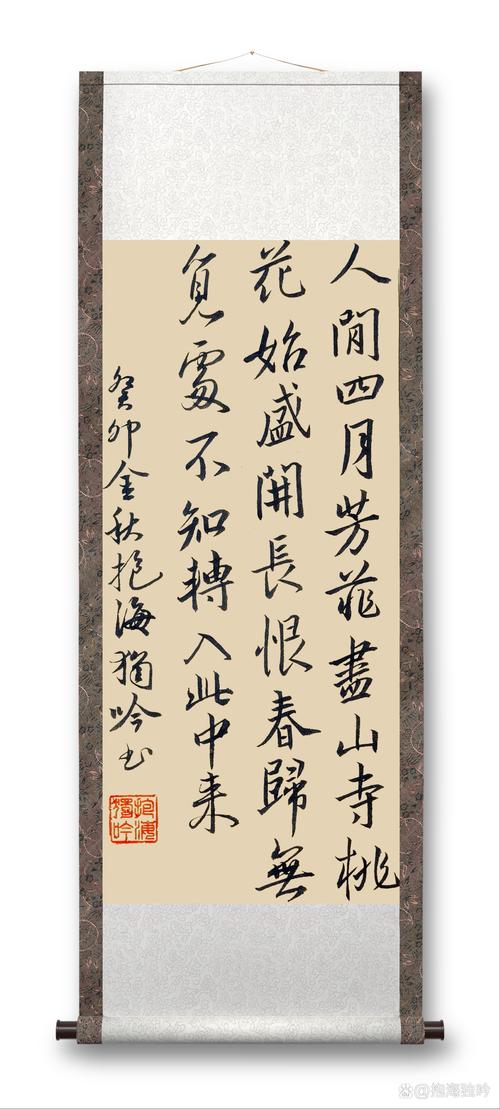 人間四月芳菲盡山寺桃
花始盛開長恨春歸無
覓處不知轉入此中来
癸卯金秋抱海獨吟书
抱海
獨吟
@抱海独吟